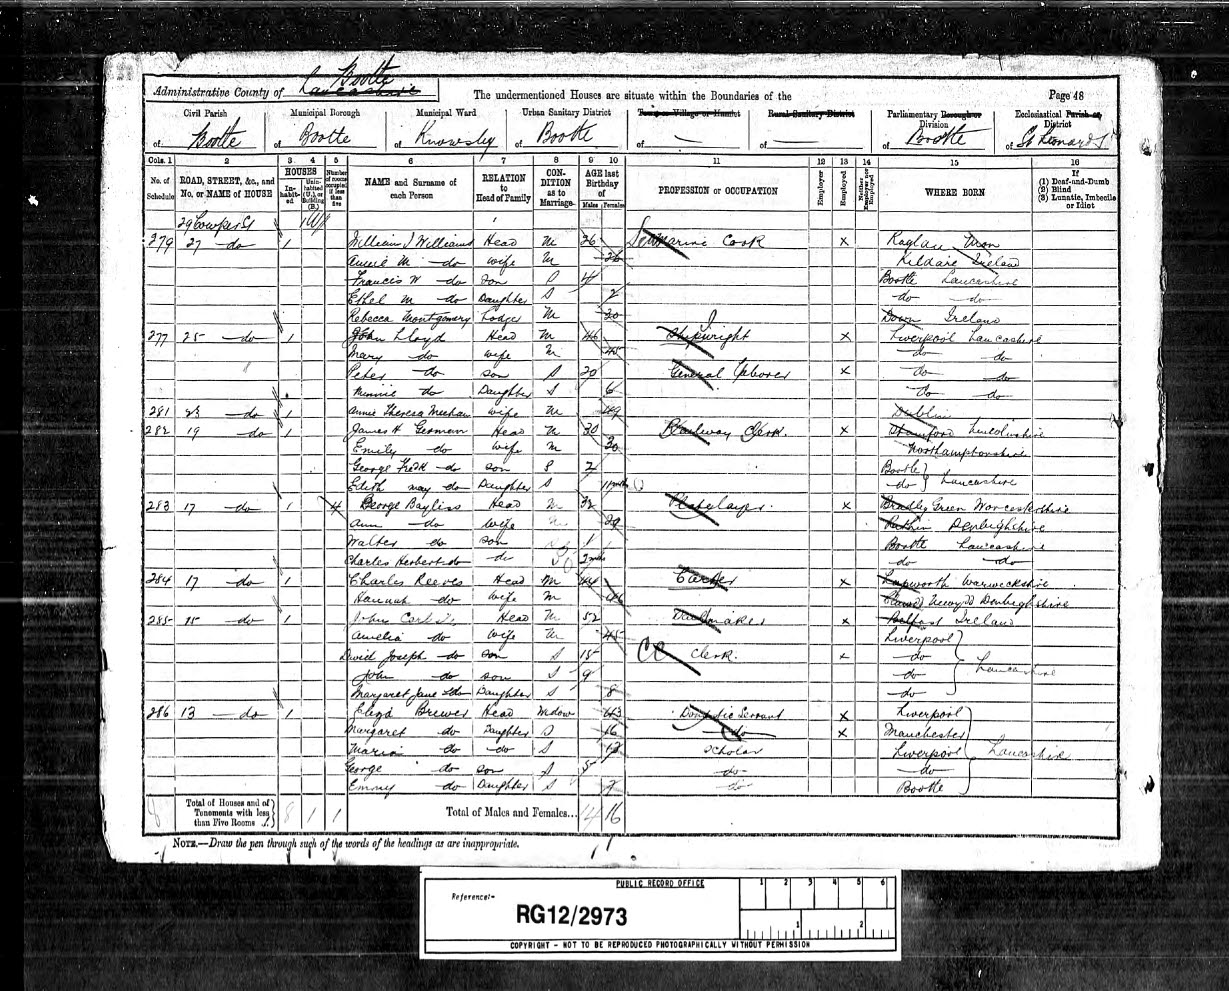 Administrative County of Lancashire Bootle
The undermentioned Houses are situate within the Boundaries of the
Page 48
Civil Parish Municipal Borough Municipal Ward Urban Sanitary District Town or Village or Hamlet Rural Sanitary District Parliamentary Borough or Division Ecclesiastical Parish or District
of Bootle of Bootle of Knowsley of Bootle of — of — of Bootle of St Leonards
Cols. 1 2 3 4 5 6 7 8 9 10 11 12 13 14 15 16
No. of Schedule ROAD, STREET, &c., and No. or NAME of HOUSE HOUSES Inhabited Uninhabited (U.), or Building (B.) Number of rooms occupied if less than five NAME and Surname of each Person RELATION to Head of Family CONDITION as to Marriage AGE last Birthday of Males Females PROFESSION or OCCUPATION Employer Employed Neither Employer nor Employed WHERE BORN If (1) Deaf-and-Dumb (2) Blind (3) Lunatic, Imbecile or Idiot
29 Cowper St
279 27 do 1 William J Williams Head M 26 Marine Cook X Raglan Mon
Annie M do wife M 26 Kildare Ireland
Francis W do son S 4 Bootle Lancashire
Ethel M do Daughter S 2 do do
Rebecca Montgomery Lodger M 20 Down Ireland
277 25 do 1 John Lloyd Head M 46 Shipwright X Liverpool Lancashire
Mary do wife M 45 do do
Peter do son S 20 General Laborer X do do
Minnie do Daughter S 6 do do
281 23 do 1 Annie Theresa Meehan wife M 49 Dublin
282 19 do 1 James H German Head M 30 Railway Clerk. X Stamford Lincolnshire
Emily do wife M 30 Northamptonshire
George Fredk do son S 2 Bootle
Edith may do Daughter S 11 mths do Lancashire
283 17 do 1 4 George Bayliss Head M 32 Platelayer. X Bradley Green Worcestershire
Ann do Wife 29 Ruthin Denbighshire
Walter do son 1 Bootle Lancashire
Charles Herbert do do 2 mths do do
284 17 do 1 Charles Reeves Head M 44 Carter X Lapworth Warwickshire
Hannah do Wife M 46 Denbighshire
285 15 do 1 Head M 52 X Belfast Ireland
Amelia do Wife M 45 Liverpool
David Joseph do son S 15 Clerk. X do
John do son S 9 do Lancashire
Margaret Jane do Daughter S 8 do
286 13 do 1 Eliza Brewer Head Widow 43 Domestic Servant X Liverpool
Margaret do Daughter S 16 do X Manchester
Maria do do S 12 Scholar Liverpool Lancashire
George do son S 5 do do
Emmy do Daughter S do Bootle
8 Total of Houses and of Tenements with less than Five Rooms 8 1 1 Total of Males and Females... 14 16
NOTE.—Draw the pen through such of the words of the headings as are inappropriate.
PUBLIC RECORD OFFICE
Reference:-
RG12/2973
1 2 3 4 5 6
1 2
COPYRIGHT - NOT TO BE REPRODUCED PHOTOGRAPHICALLY WITHOUT PERMISSION